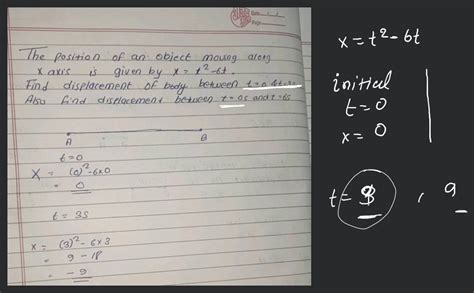 Date
Page
The position of an object moving along
x axis is given by x = t²-6t.
Find displacement of body between t=0 & t=3s
Also find displacement between t=0s and t=6s
A B
t=0
X = (0)²-6x0
= 0
t = 3s
x = (3)² - 6x3
= 9 - 18
= -9
x = t² - 6t
initial
t = 0
x = 0
t = 3 , 9